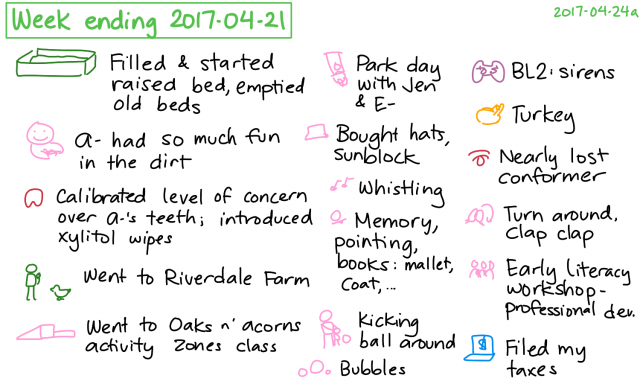 Week ending 2017-04-21
2017-04-24a
Filled & started
raised bed, emptied
old beds
a- had so much fun
in the dirt
Calibrated level of concern
over a-'s teeth; introduced
xylitol wipes
Went to Riverdale Farm
Went to Oaks n' acorns
activity zones class
Park day
with Jen
& E-
Bought hats,
sunblock
Whistling
Memory,
pointing,
books: mallet,
coat, ...
Kicking
ball around
Bubbles
BL2: sirens
Turkey
Nearly lost
conformer
Turn around,
clap clap
Early literacy
workshop -
professional dev.
$
Filed my
taxes